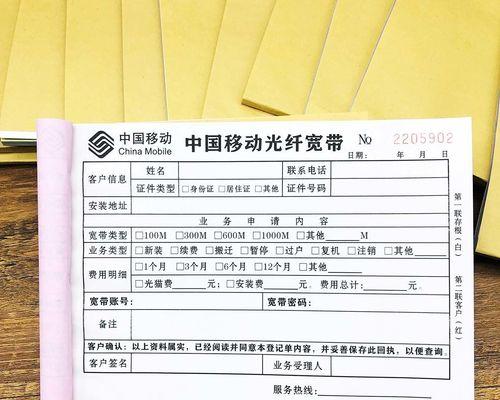 中国移动
China Mobile
中国移动光纤宽带 No 2205902
日期: 年 月 日
客户信息 姓名 联系电话
证件类型 □身份证 □居住证 □其他 证件号码
安装地址
业务申请内容
宽带类型 □100M □300M □600M □1000M □其他______M
业务类型 □新装 □续费 □搬迁 □暂停 □过户 □复机 □注销 □其他______
费用明细 □1个月 □3个月 □6个月 □12个月 □其他______
□光猫费______元; □安装费______元; 费用总计:______元。
宽带账号: 宽带密码:
备注
客户确认: 以上资料属实, 已经阅读并同意本登记单内容, 并妥善保存此回执, 以便查询。
客户签名 业务受理人
服务热线:
第一联存根(白)
第二联客户(红)